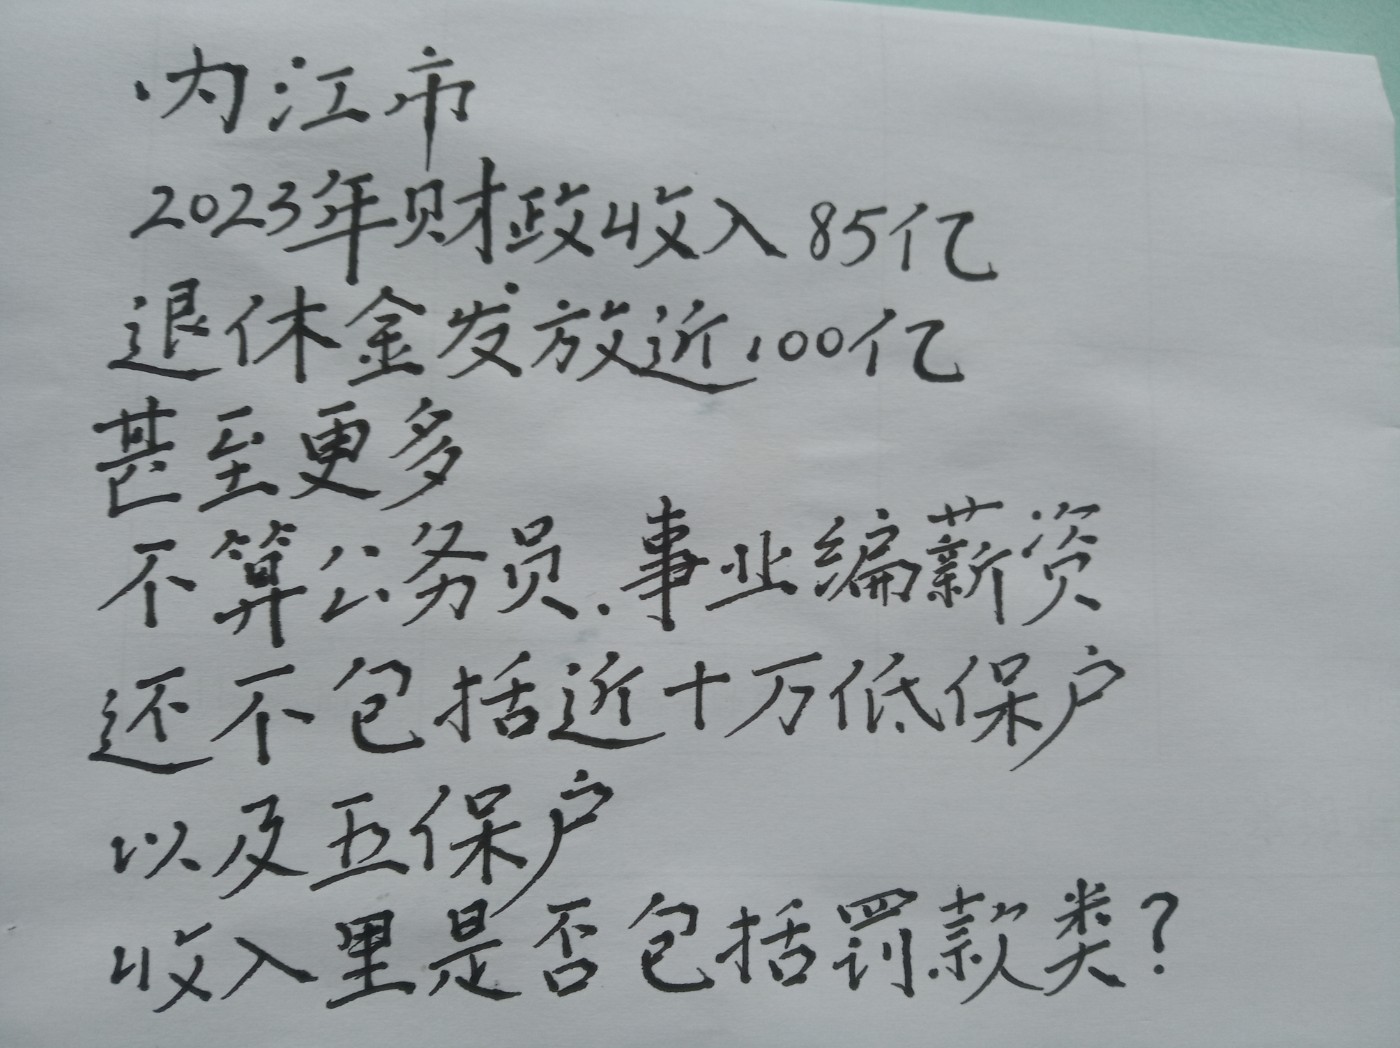 内江市
2023年财政收入85亿
退休金发放近100亿
甚至更多
不算公务员.事业编薪资
还不包括近十万低保户
以及五保户
收入里是否包括罚款类?